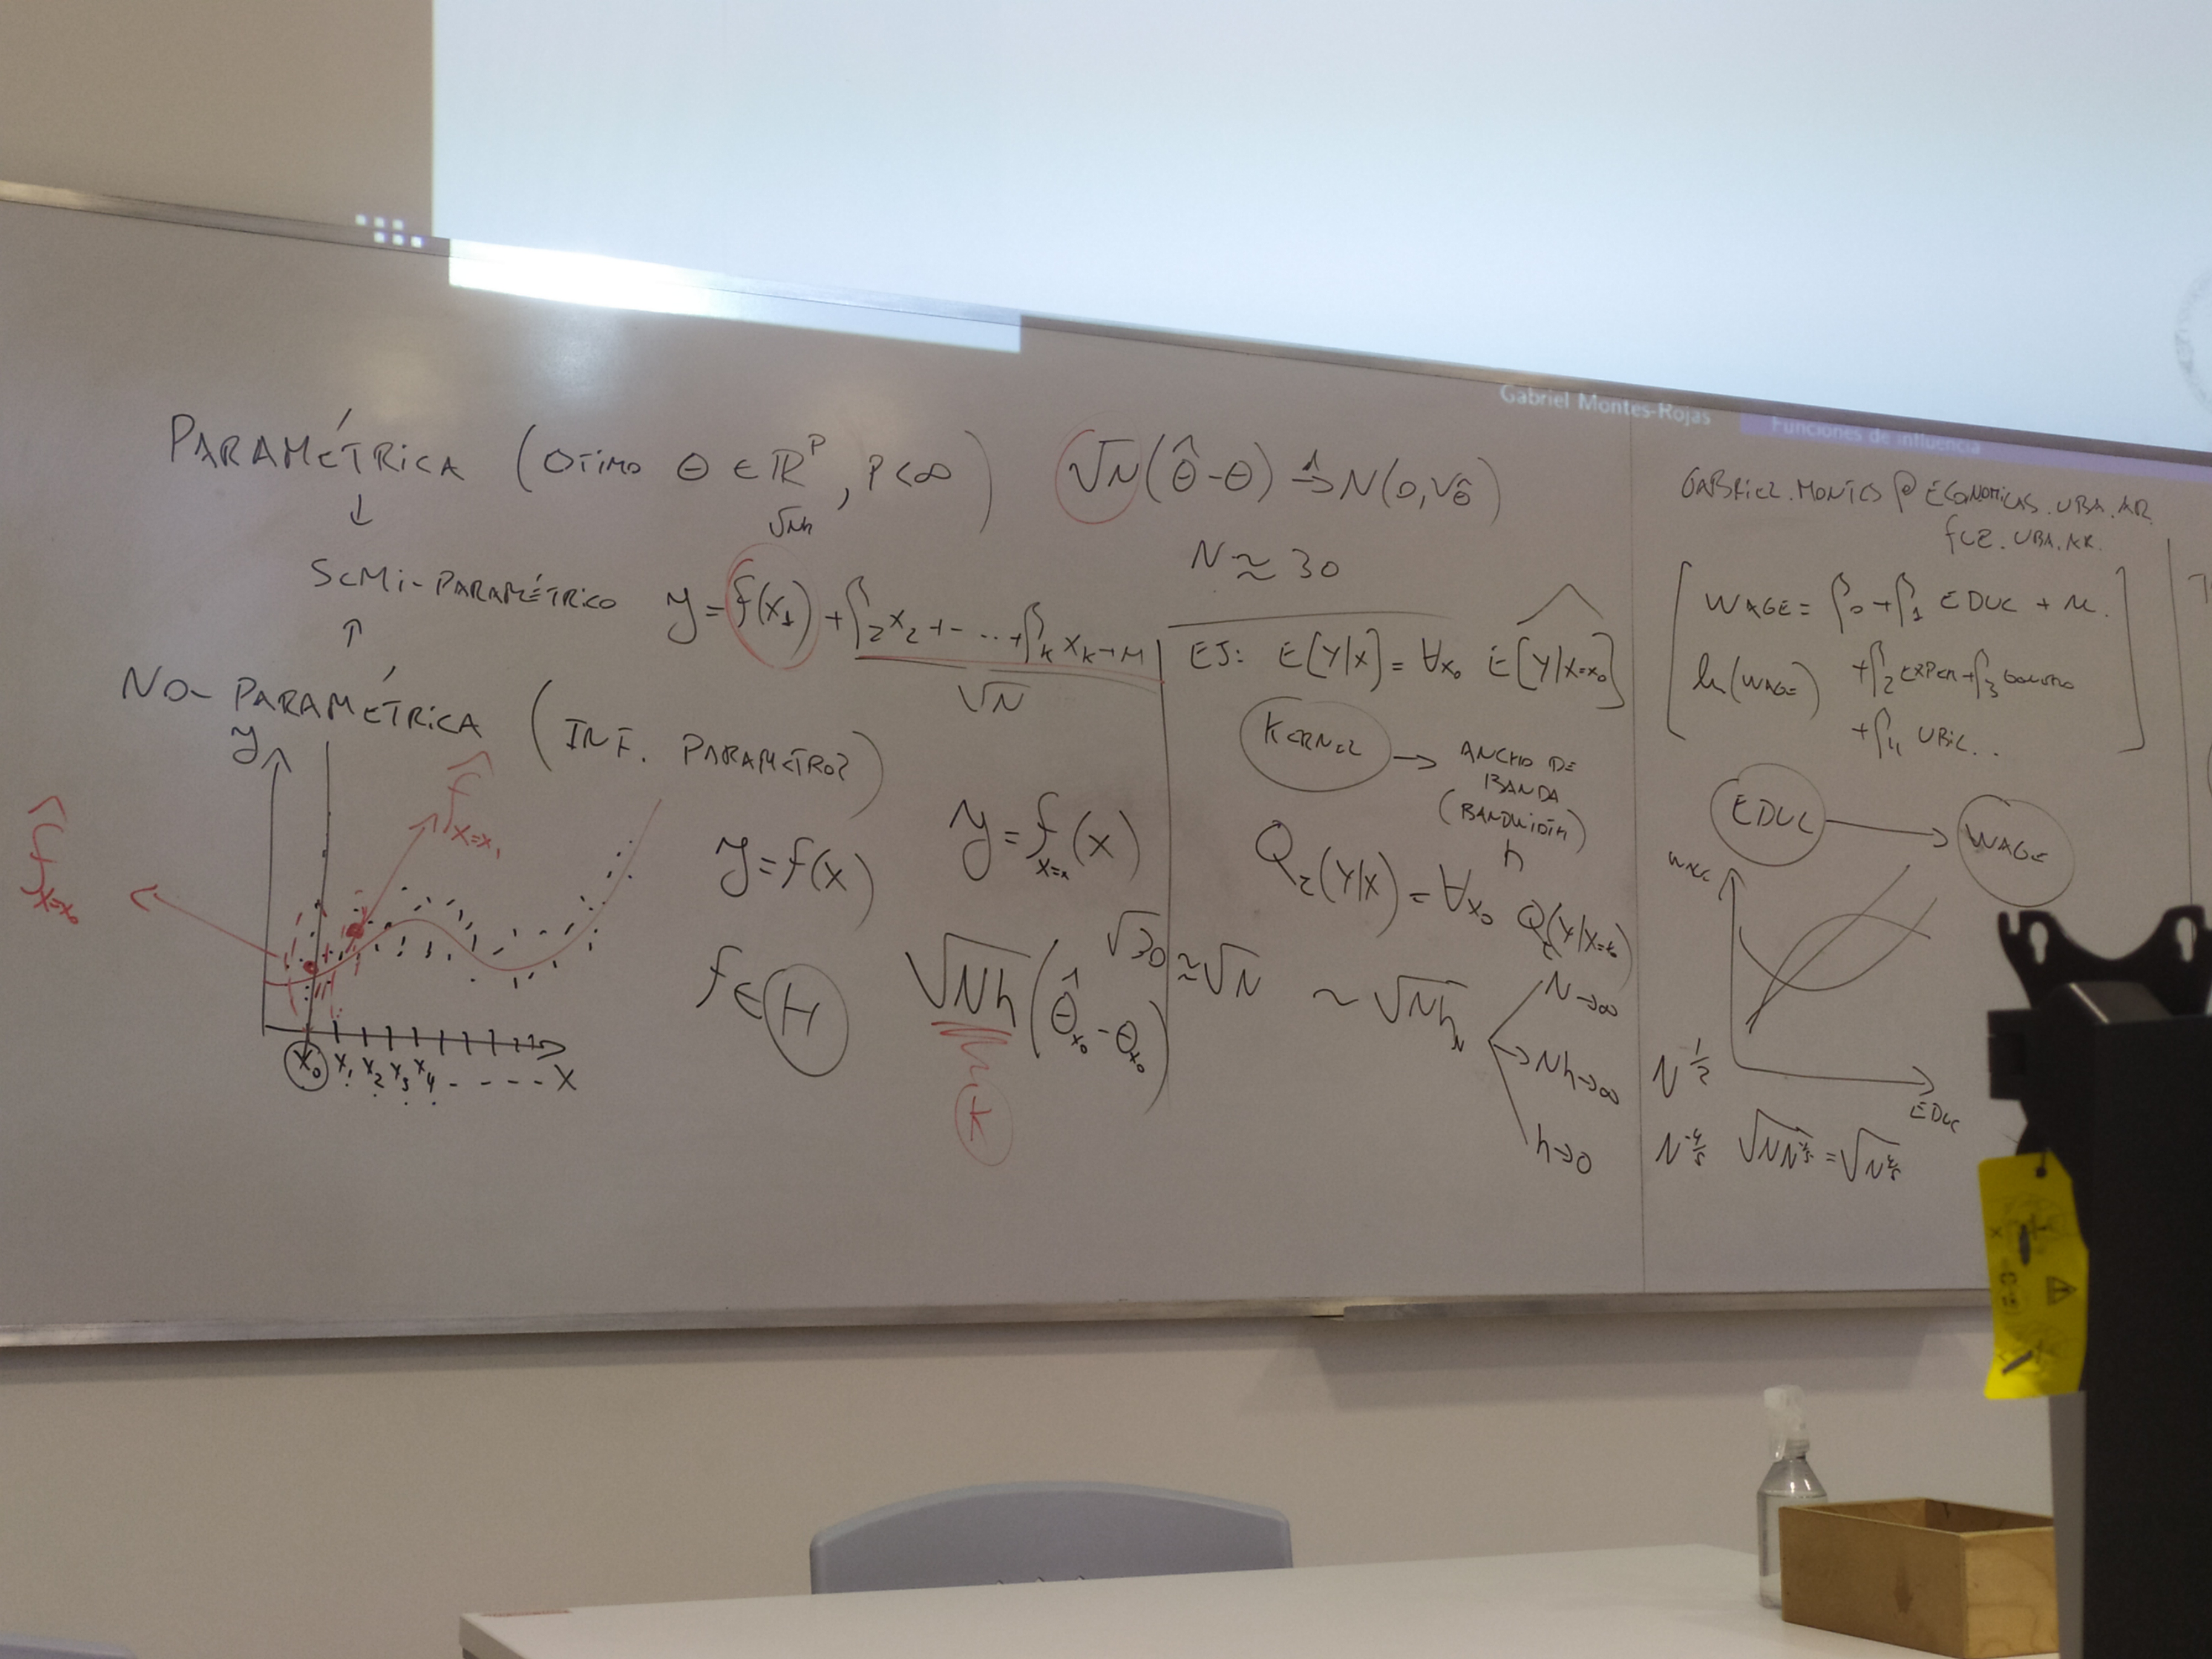 Gabriel Montes-Rojas
Funciones de influencia
PARAMÉTRICA (OTIMO θ ∈ ℝ^P, P<∞)
√N(θ̂-θ) →d N(0,Vθ̂)
↓
√Nh
N ≈ 30
SEMI-PARAMÉTRICO
y = f(x₁) + β₂x₂ + ... + β_k x_k + μ
√N
↑
NO-PARAMÉTRICA (INF. PARAMETROS)
y
f̂ x=x₁
f̂ x=x₀
x₀ x₁ x₂ x₃ x₄ - - - - x
y = f(x)
y = f x=x (x)
f ∈ H
√Nh (θ̂x₀ - θx₀)
K
EJ: E[Y|X] = ∀x₀ Ê[Y|X=x₀]
KERNEL → ANCHO DE
BANDA
(BANDWIDTH)
h
Q_τ(Y|X) = ∀x₀ Q_τ(Y|X=x₀)
√30 ≈ √N ~ √Nh_N
N→∞
→ Nh→∞
h→0
GABRIEL.MONTES@ECONOMICAS.UBA.AR
FCE.UBA.AR.
WAGE = β₀ + β₁ EDUC + μ.
ln(WAGE) + β₂ EXPER + β₃
+ β₄ UBIC..
EDUC → WAGE
WAGE
EDUC
N^½
N^-⅘ √NN^-⅕ = √N^⅘